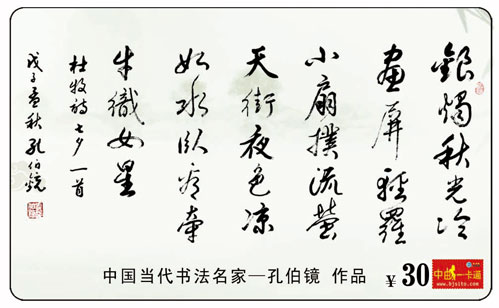 銀燭秋光冷
畫屏輕羅
小扇撲流螢
天街夜色凉
如水臥看牽
牛織女星
杜牧詩七夕一首
戊子孟秋孔伯鏡
中国当代书法名家—孔伯镜 作品
¥30
一卡通
www.bjsito.com